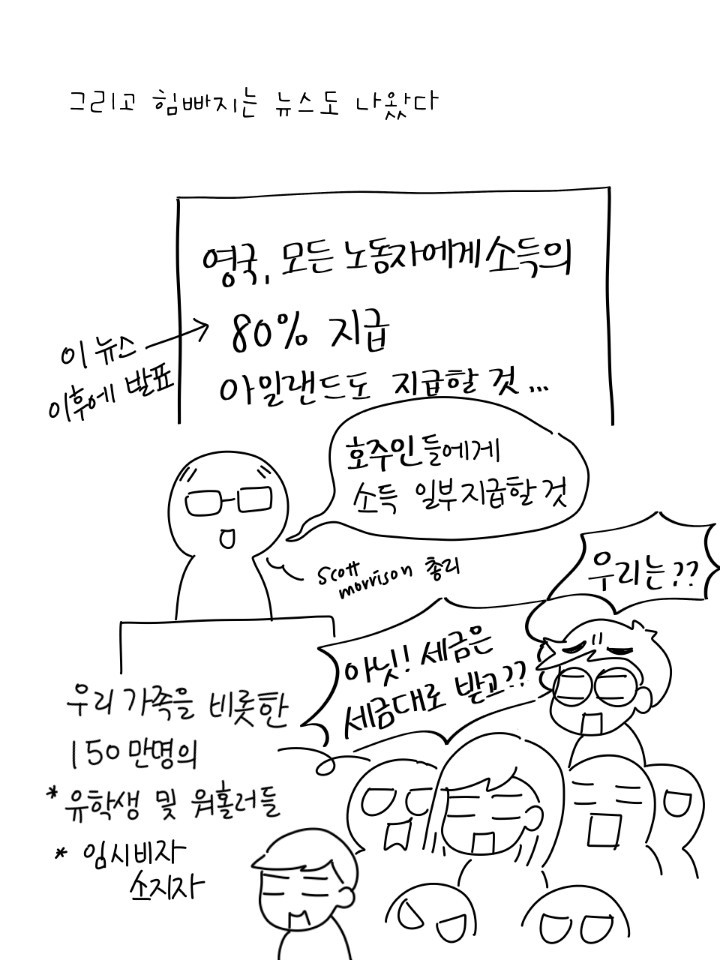 그리고 힘빠지는 뉴스도 나왔다
영국, 모든 노동자에게 소득의
80% 지급
아일랜드도 지급할 것...
이 뉴스
이후에 발표
호주인들에게
소득 일부지급할 것
scott
morrison 총리
우리는??
아닛! 세금은
세금대로 받고??
우리 가족을 비롯한
150만명의
* 유학생 및 워홀러들
* 임시비자
소지자